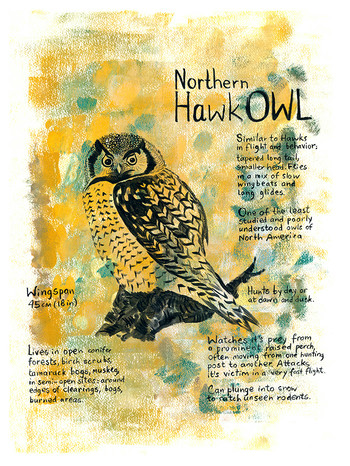 Northern
HawkOWL
Similar to Hawks
in flight and behavior;
tapered long tail,
smaller head. Flies
in a mix of slow
wingbeats and
long glides.
One of the least
studied and poorly
understood owls of
North America
Wingspan
45cm (18 in)
Hunts by day or
at dawn and dusk.
Lives in open conifer
forests, birch scrubs,
tamarack bogs, muskeg,
in semi-open sites: around
edges of clearings, bogs,
burned areas.
Watches it's prey from
a prominent, raised perch,
often moving from one hunting
post to another. Attacks
it's victim in a very fast flight.
Can plunge into snow
to catch unseen rodents.